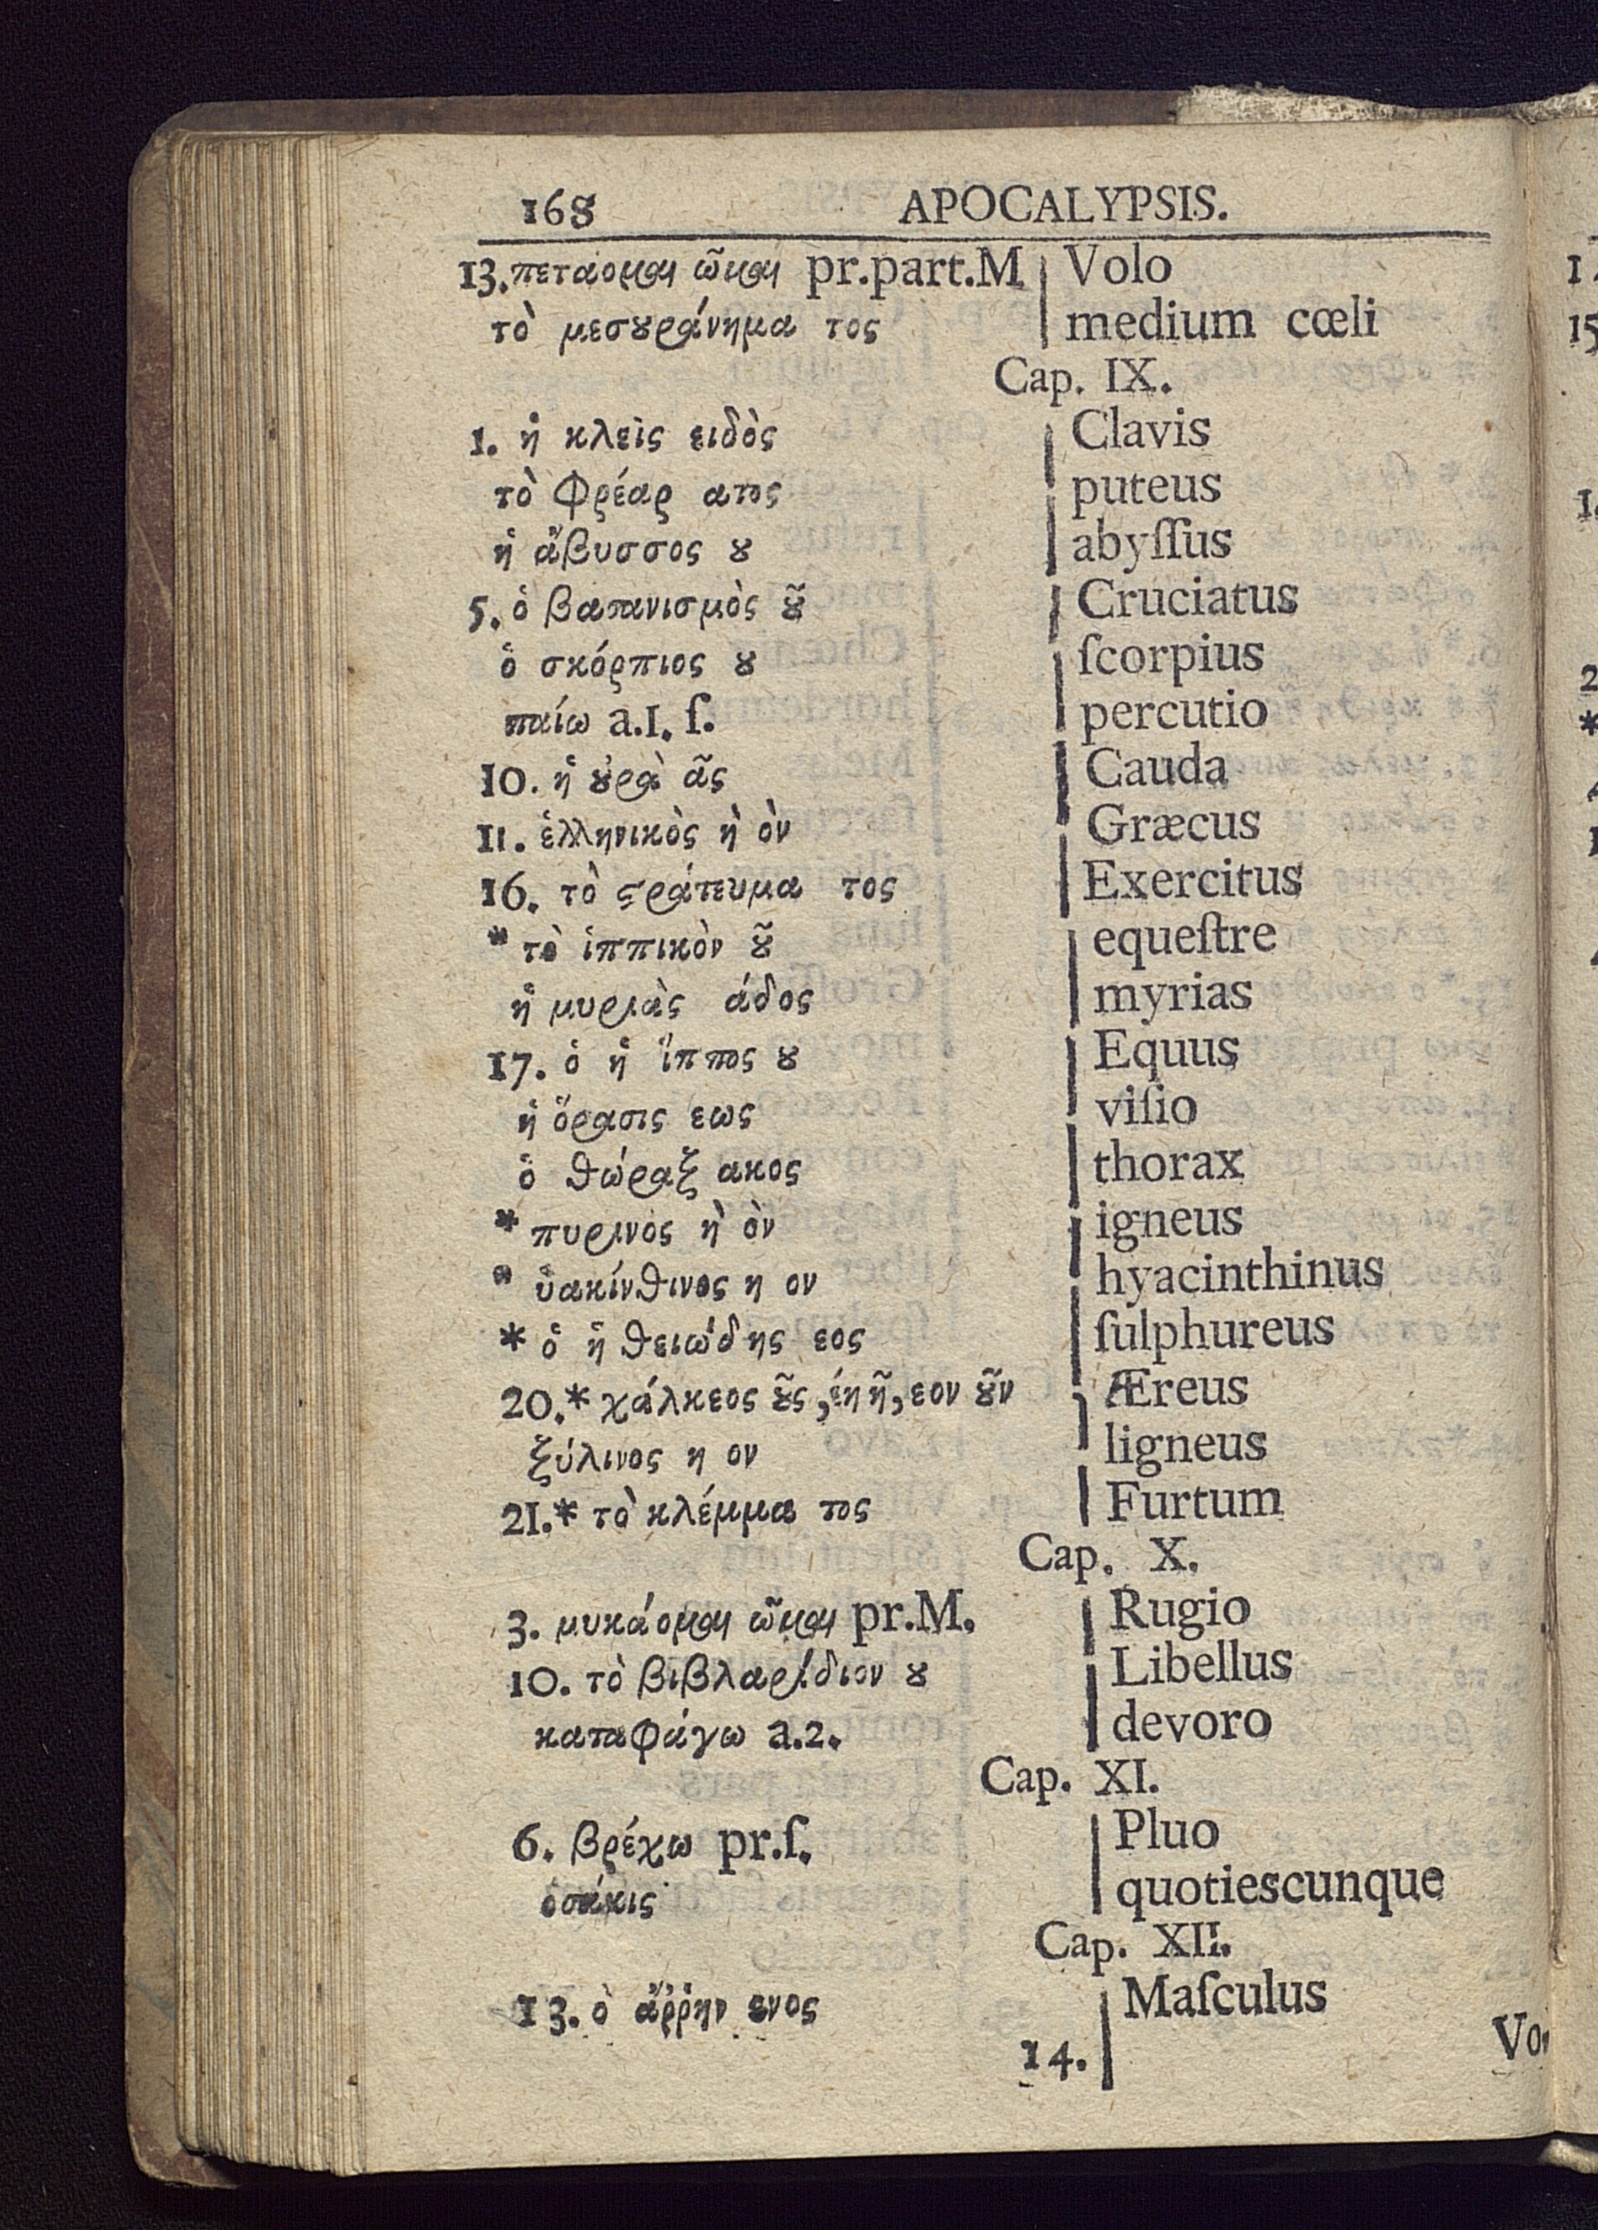 168 APOCALYPSIS.
13. πετάομαι ῶμαι pr.part.M Volo
τὸ μεσȣράνημα τος medium cœli
Cap. IX.
1. ἡ κλεὶς ειδὸς Clavis
τὸ φρέαρ ατος puteus
ἡ ἄβυσσος ȣ abyſſus
5. ὁ βασανισμὸς ȣ͂ Cruciatus
ὁ σκόρπιος ȣ ſcorpius
παίω a.1. ſ. percutio
10. ἡ ȣ̓ρὰ ᾶς Cauda
11. ἑλληνικὸς ὴ ὸν Græcus
16. τὸ ϛράτευμα τος Exercitus
* τὸ ἱππικὸν ȣ͂ equeſtre
ἡ μυριὰς άδος myrias
17. ὁ ἡ ἵππος ȣ Equus
ἡ ὅρασις εως viſio
ὁ θώραξ ακος thorax
* πυρινὸς ὴ ὸν igneus
* ὑακίνθινος η ον hyacinthinus
* ὁ ἡ θειώδης εος ſulphureus
20.* χάλκεος ȣ͂ς, έη ῆ, εον ȣ͂ν Æreus
ξύλινος η ον ligneus
21.* τὸ κλέμμα τος Furtum
Cap. X.
3. μυκάομαι ῶμαι pr.M. Rugio
10. τὸ βιβλαρίδιον ȣ Libellus
καταφάγω a.2. devoro
Cap. XI.
6. βρέχω pr.ſ. Pluo
ὁσάκις quotiescunque
Cap. XII.
13. ὁ ἄῤῥην ενος Maſculus
14. Vo